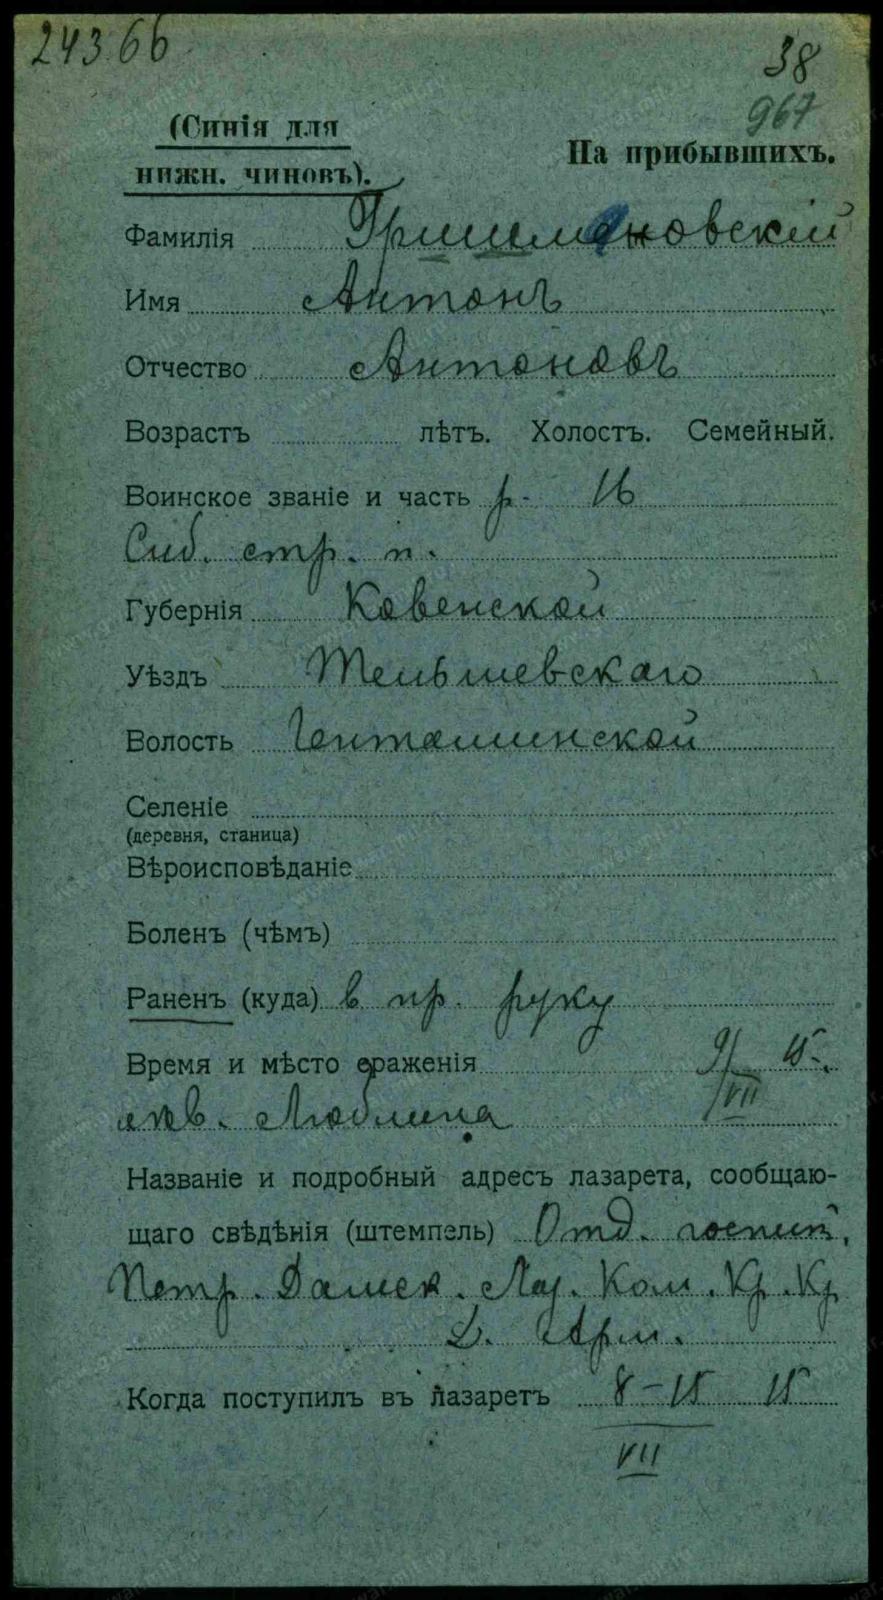 24366
38
967
(Синія для
нижн. чиновъ).
На прибывшихъ.
Фамилія Гришмановскій
Имя Антонъ
Отчество Антоновъ
Возрастъ лѣтъ. Холостъ. Семейный.
Воинское званіе и часть р. 16
Сиб. стр. п.
Губернія Ковенской
Уѣздъ Тельшевскаго
Волость
Селеніе
(деревня, станица)
Вѣроисповѣданіе
Боленъ (чѣмъ)
Раненъ (куда) в пр. руку
Время и мѣсто сраженія 9/VII 15.
Люблина
Названіе и подробный адресъ лазарета, сообщаю-
щаго свѣдѣнія (штемпель) Отд. госпит.
Петр. Дамск. Лаз. Ком. Кр. Кр
Арм.
Когда поступилъ въ лазаретъ 8-15 15
VII